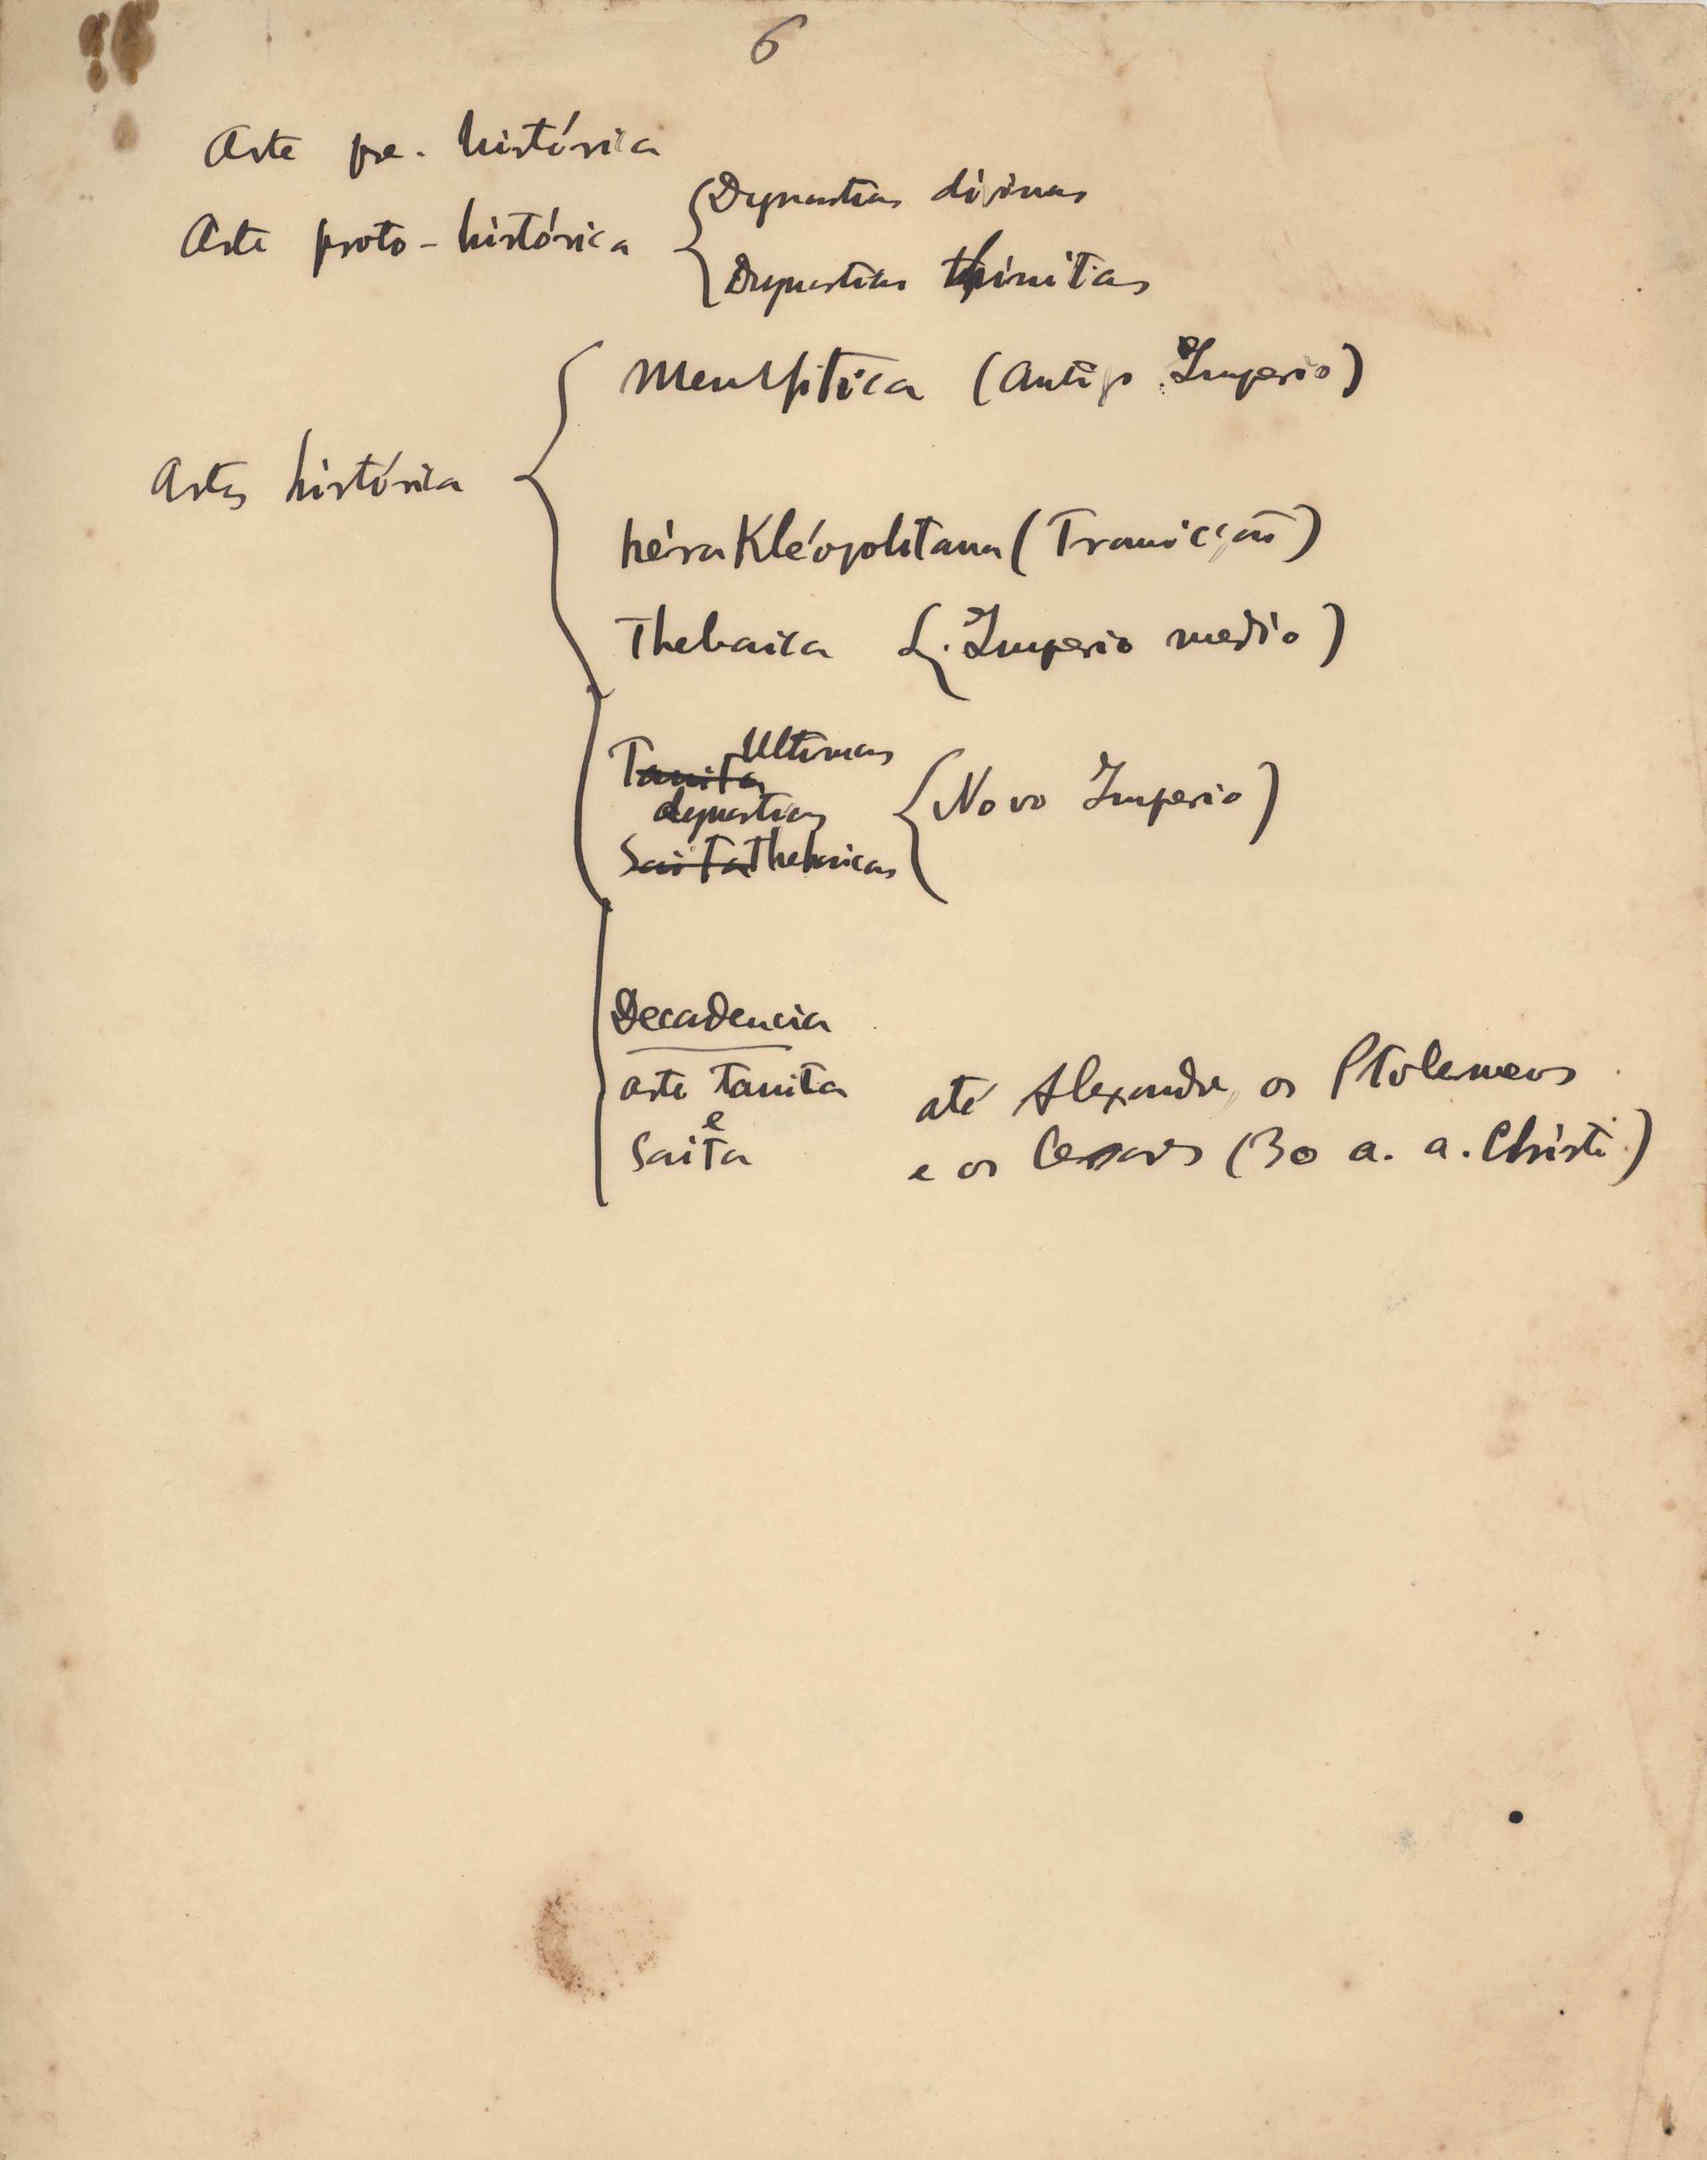 6
Arte pre-histórica
Arte proto-histórica { Dynastias divinas
Dynastias thinitas
Artes histórica { Memphitica (Antigo Imperio)
hérakléopolitana (Transicção)
Thebaica { Imperio medio)
Tanita Ultimas
dynastias { Novo Imperio)
Saita Thebaicas
Decadencia
arte tanita até Alexandre, os Ptolemeus
e
Saita e os Cesares (30 a. a. Christi)